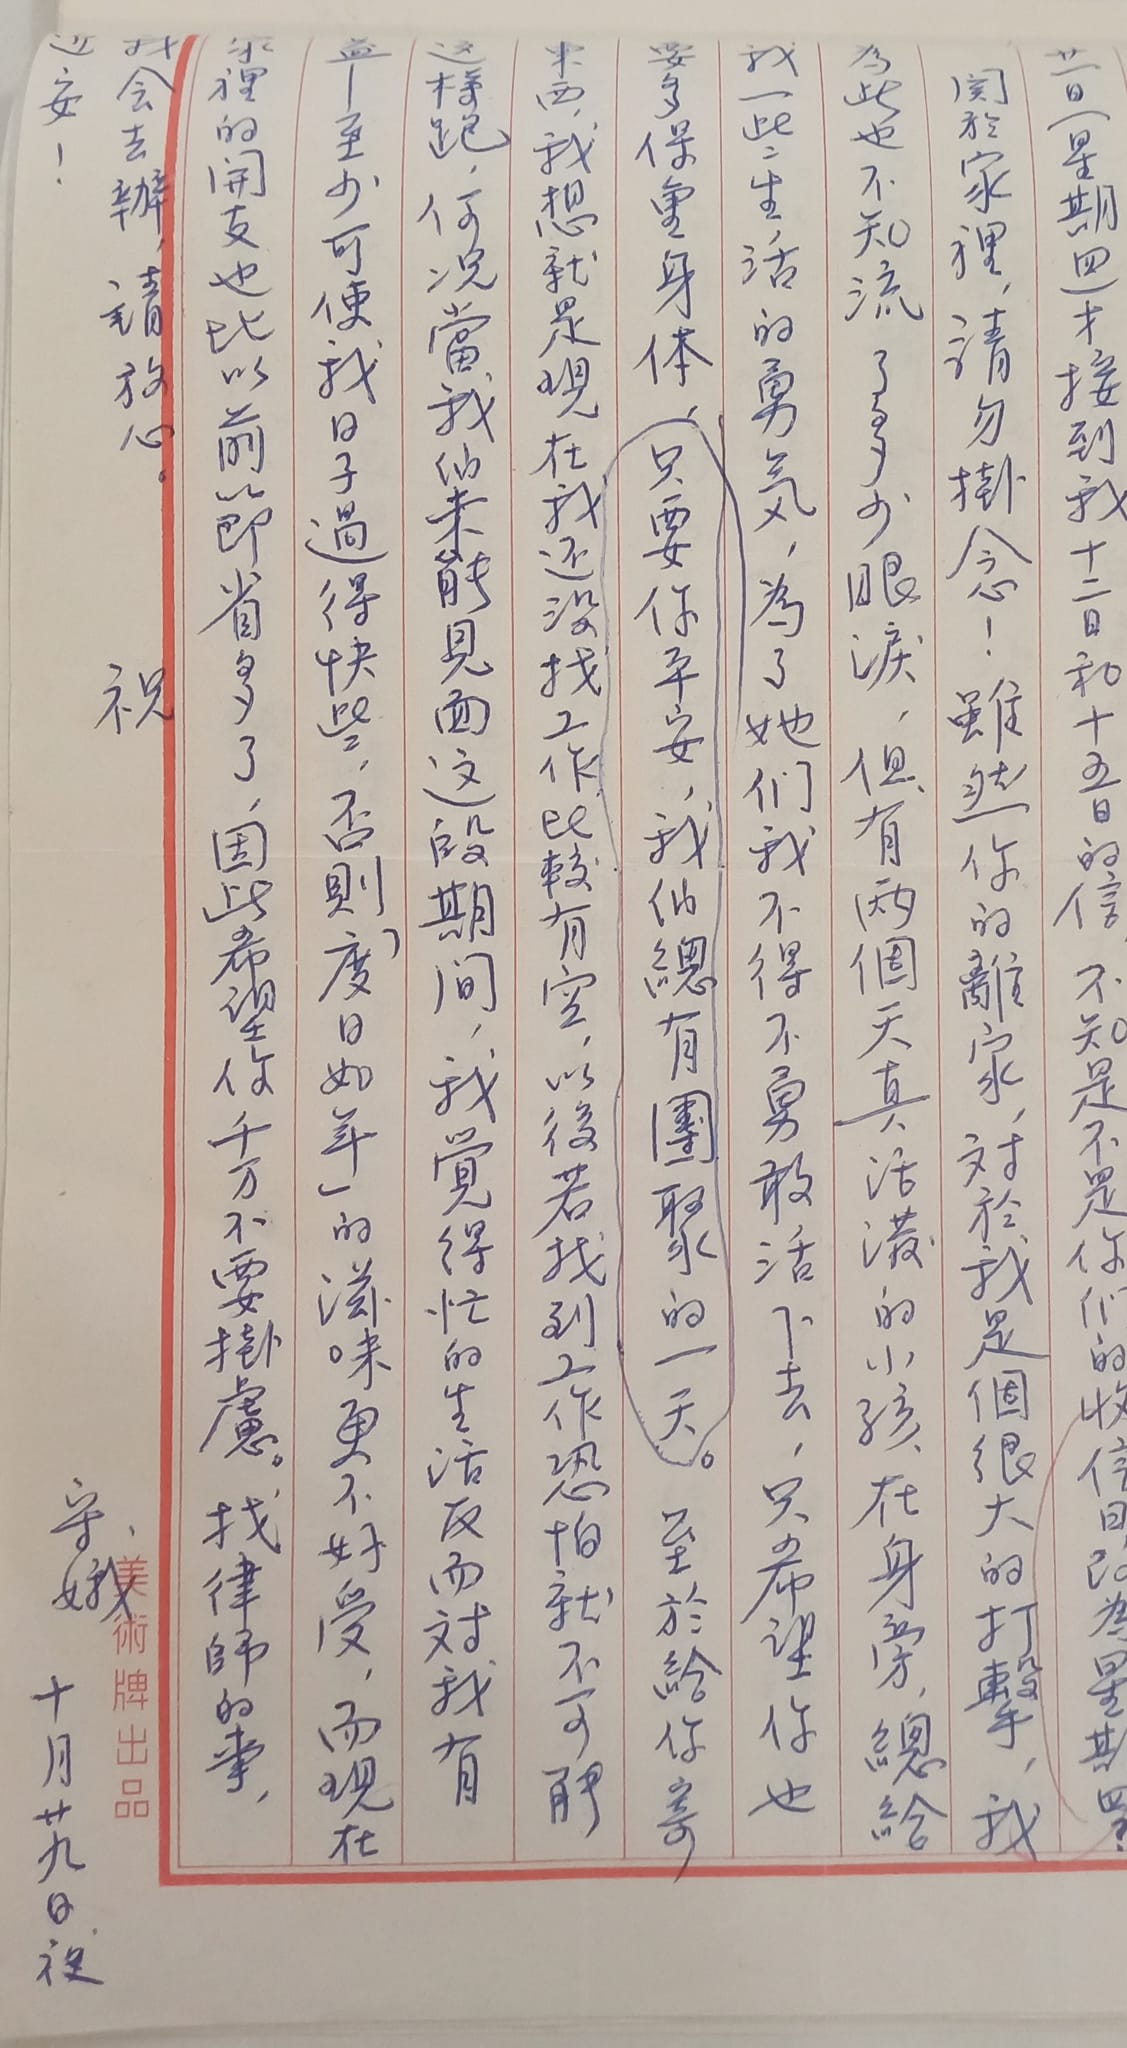 廿二日(星期四)才接到我十二日和十五日的信,不知是不是你们的收信日改為星期四
関於家裡,請勿掛念!雖然你的離家,对於我是個很大的打擊,我
為此也不知流了多少眼淚,但有兩個天真活潑的小孩在身旁,總給
我一些生活的勇気,為了她们我不得不勇敢活下去,只希望你也
要多保重身体,只要你平安,我们總有團聚的一天。至於給你寄
東西,我想就是現在我还没找工作比較有空,以後若找到工作恐怕就不可能
这樣跑,何况當我们未能見面这段期间,我覚得忙的生活反而对我有
益—至少可使我日子過得快些,否則「度日如年」的滋味更不好受,而現在
家裡的開支也比以前節省多了,因此希望你千万不要掛慮。找律師的事,
我会去辦,請放心。
祝
近安!
守娥
十月廿九日夜
美術牌出品